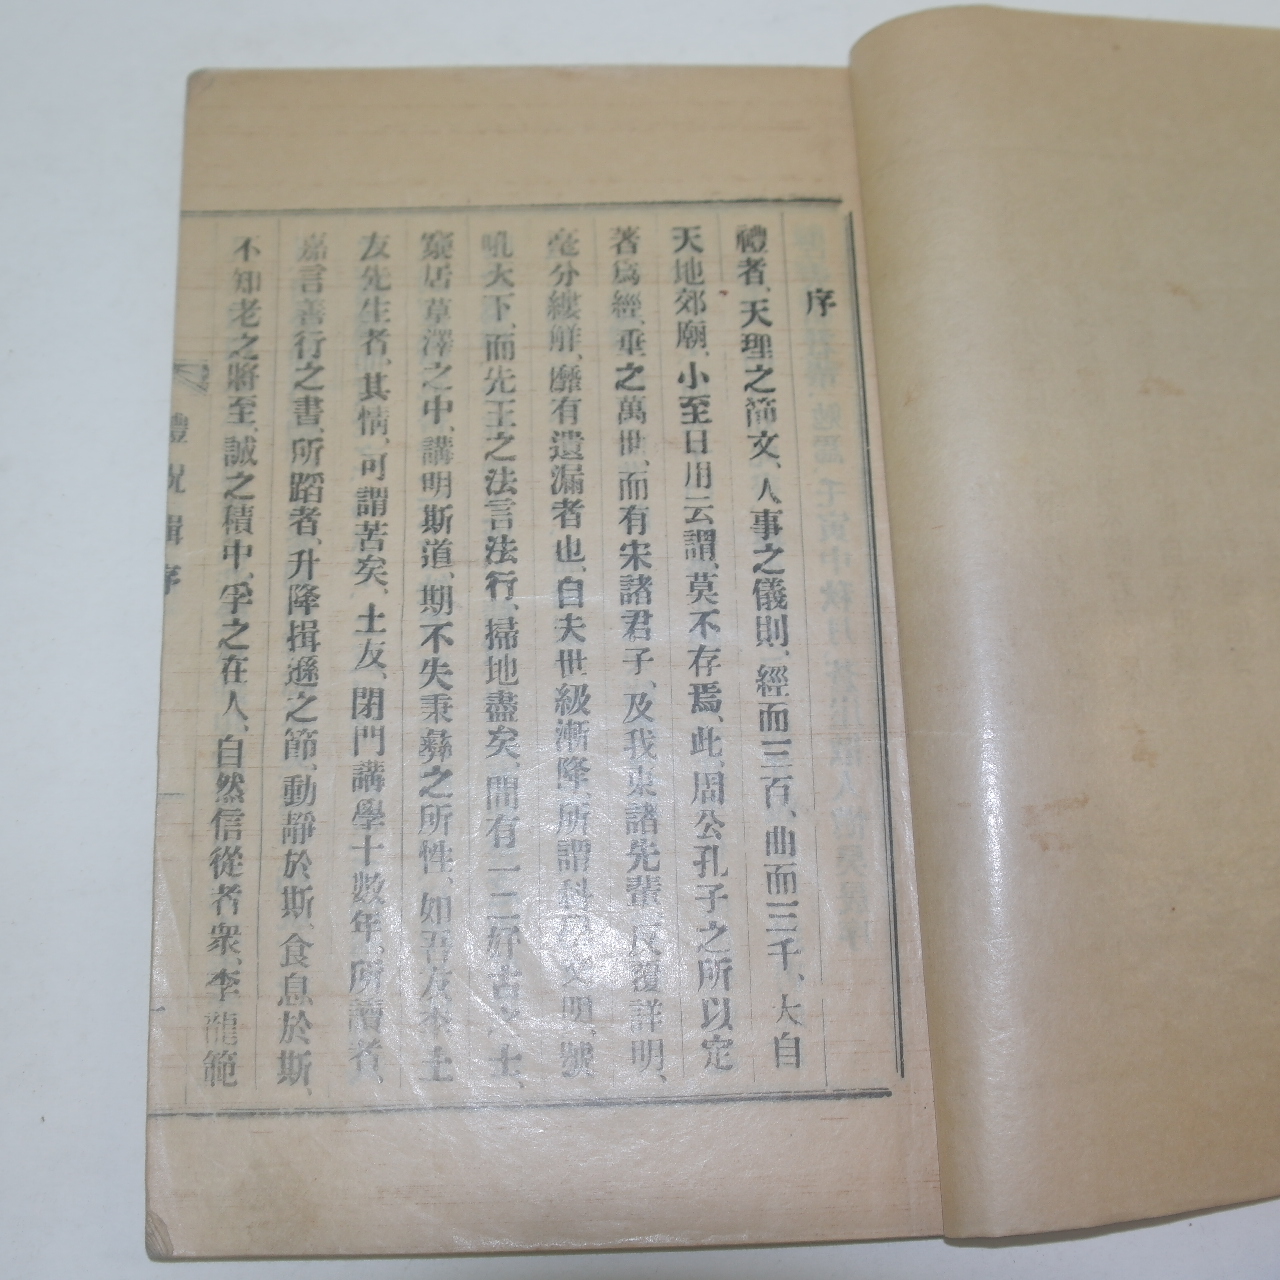 序
禮者、天理之節文、人事之儀則、經而三百、曲而三千、大自
天地郊廟、小至日用云謂、莫不存焉、此、周公孔子之所以定
著爲經、垂之萬世、而有宋諸君子、及我東諸先輩、反覆詳明、
毫分縷解、靡有遺漏者也、自夫世級漸降、所謂科 文明、號
吼天下、而先王之法言法行、掃地盡矣、間有一二好古之士、
窮居草澤之中、講明斯道、期不失秉彛之所性、如吾友李士
友先生者、其情、可謂苦矣、士友、閉門講學十數年、所讀者、
嘉言善行之書、所蹈者、升降揖遜之節、動靜於斯、食息於斯、
不知老之將至、誠之積中、孚之在人、自然信從者衆、李龍範
禮況輯序
一